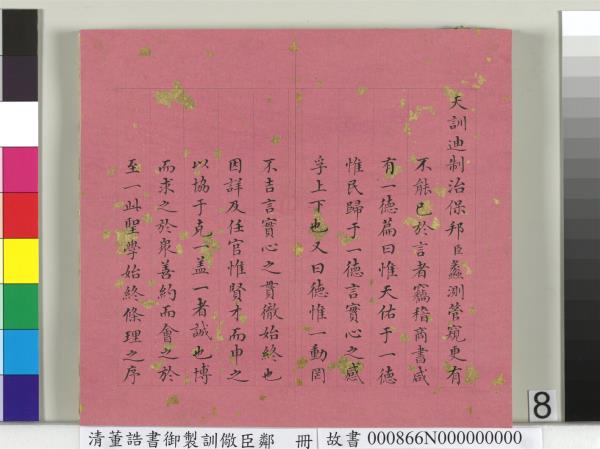 天訓迪制治保邦臣蠡測管窺更有
不能已於言者竊稽商書咸
有一德篇曰惟天佑于一德
惟民歸于一德言實心之感
孚上下也又曰德惟一動罔
不吉言實心之貫徹始終也
因詳及任官惟賢才而申之
以協于克一蓋一者誠也博
而求之於衆善約而會之於
至一此聖學始終條理之序
8
清董誥書御製訓儆臣鄰 冊
故書 000866N000000000